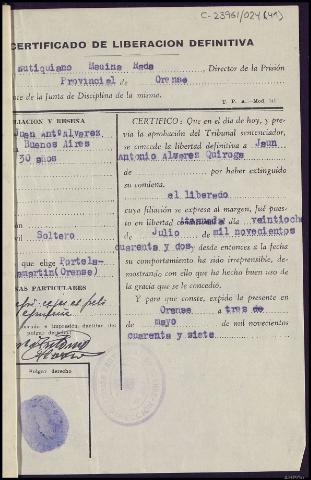 C-23961/024(41)
CERTIFICADO DE LIBERACION DEFINITIVA
utiquiano Mauina Mada, Director de la Prisión
Provincial de Orense
te de la Junta de Disciplina de la misma.
T. P. A.-Mod.
LIACION Y RESEÑA
Juan Antº Alvarez
Buenos Aires
30 años
Soltero
que elige Portela-
smartin(Orense)
AS PARTICULARES
CERTIFICO: Que en el día de hoy, y pre-
via la aprobación del Tribunal sentenciador,
se concede la libertad definitiva a Jaun
Antonio Alvarez Quiroga
de por haber extinguido
su condena.
el liberado
cuya filiación se expresa al margen, fué pues-
to en libertad el día veintiocho
de Julio de mil novecientos
cuarenta y dos, desde entonces a la fecha
su comportamiento ha sido irreprensible, de-
mostrando con ello que ha hecho buen uso de
la gracia que se le concedió.
Y para que conste, expido la presente en
Orense a tres de
de mayo de mil novecientos
cuarenta y siete
Pulgar derecho